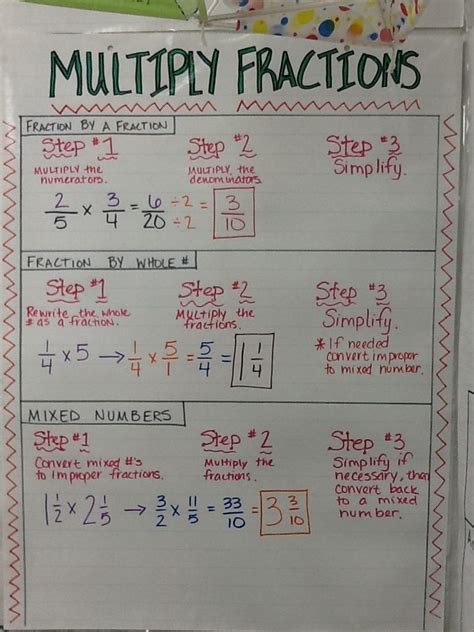 MULTIPLY FRACTIONS
FRACTION BY A FRACTION
Step #1
MULTIPLY the
numerators.
Step #2
MULTIPLY the
denominators
Step #3
Simplify.
2/5 × 3/4 = 6/20 ÷2/÷2 = 3/10
FRACTION BY WHOLE #
Step #1
Rewrite the whole
# as a fraction.
Step #2
Multiply the
fractions.
Step #3
Simplify.
* If needed
convert improper
to mixed number.
1/4 × 5 → 1/4 × 5/1 = 5/4 = 1 1/4
MIXED NUMBERS
Step #1
Convert mixed #'s
to improper fractions.
Step #2
Multiply the
fractions.
Step #3
Simplify if
necessary, then
convert back
to a mixed
number.
1 1/2 × 2 1/5 → 3/2 × 11/5 = 33/10 = 3 3/10